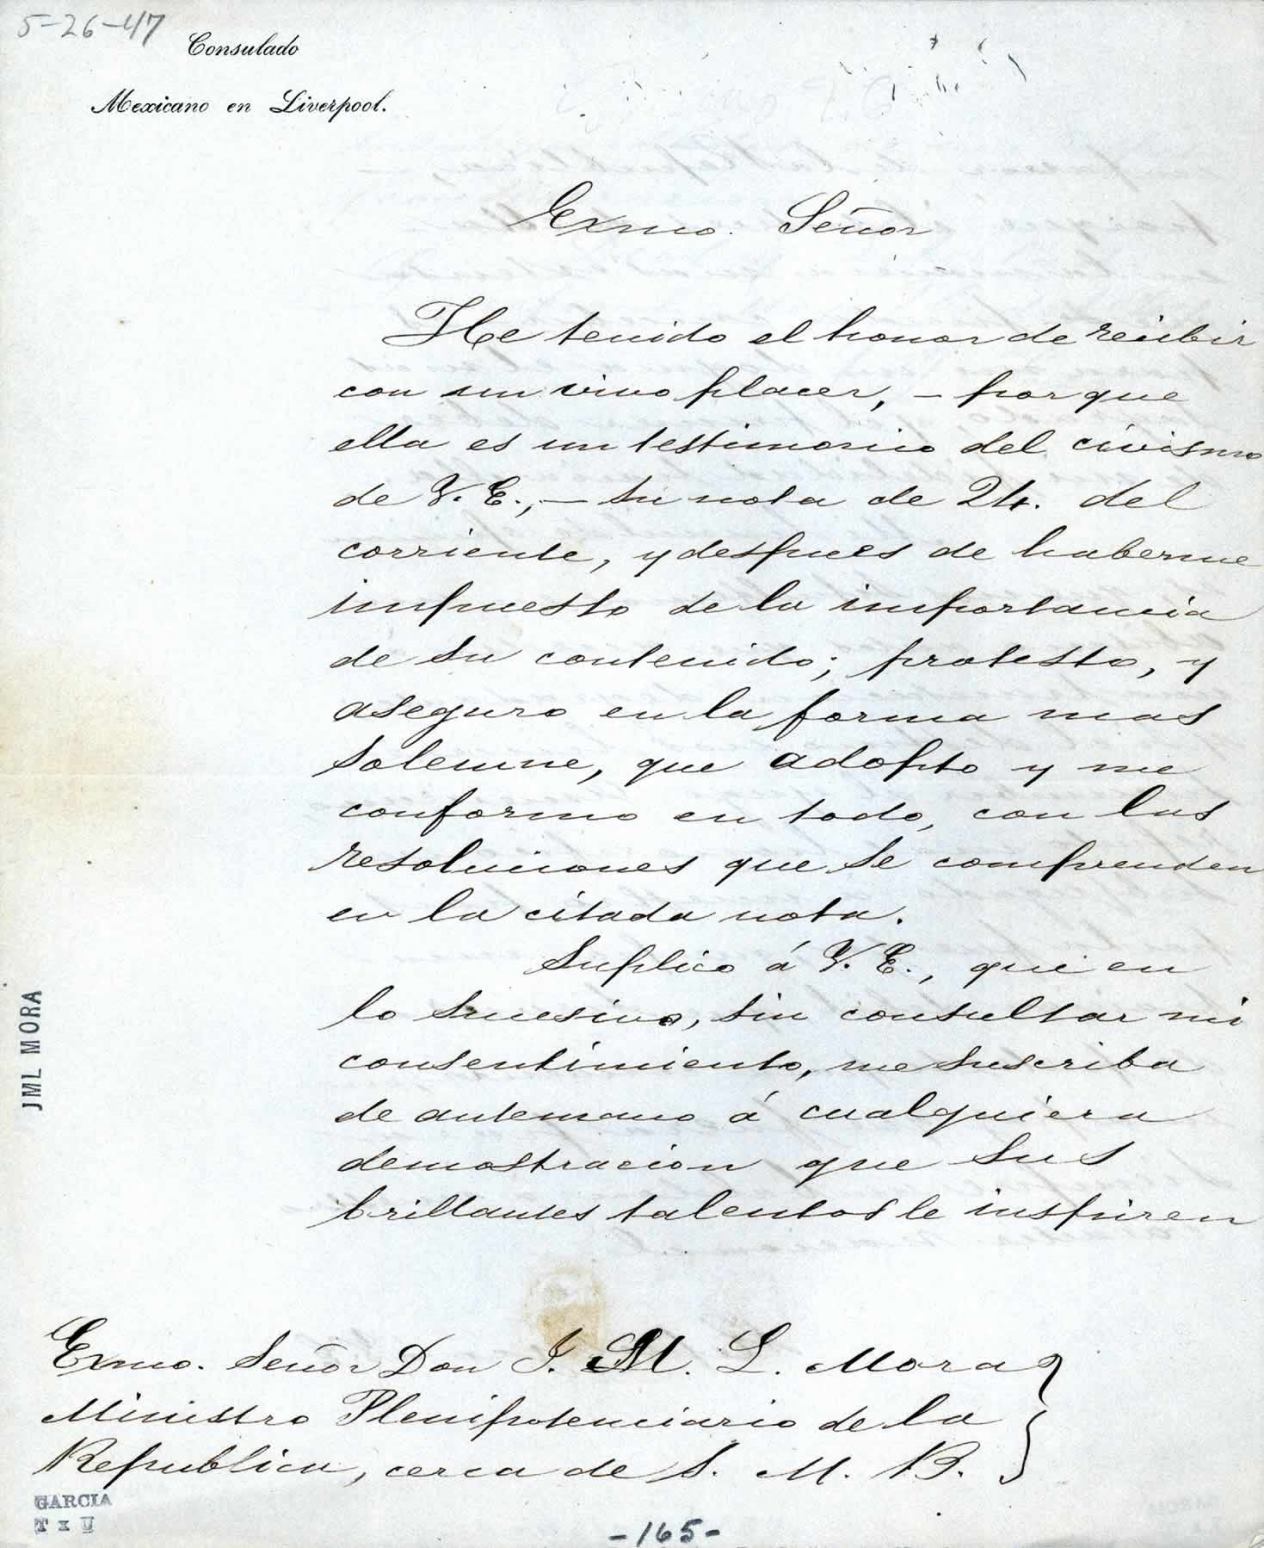 5-26-47
Consulado
Mexicano en Liverpool.
Exmo. Señor
He tenido el honor de recibir
con un vivo placer, – por que
ella es un testimonio del civismo
de V. E., – su nota de 24. del
corriente, y despues de haberme
impuesto de la importancia
de su contenido; protesto, y
aseguro en la forma mas
solemne, que adopto y me
conformo en todo, con las
resoluciones que se comprenden
en la citada nota.
Suplico á V. E., que en
lo sucesivo, sin consultar mi
consentimiento, me suscriba
de antemano á cualquiera
demostracion que sus
brillantes talentos le inspiren
Exmo. Señor Don J. M. L. Mora
Ministro Plenipotenciario de la
Republica, cerca de S. M. B.
JML MORA
GARCIA
T x U
-165-